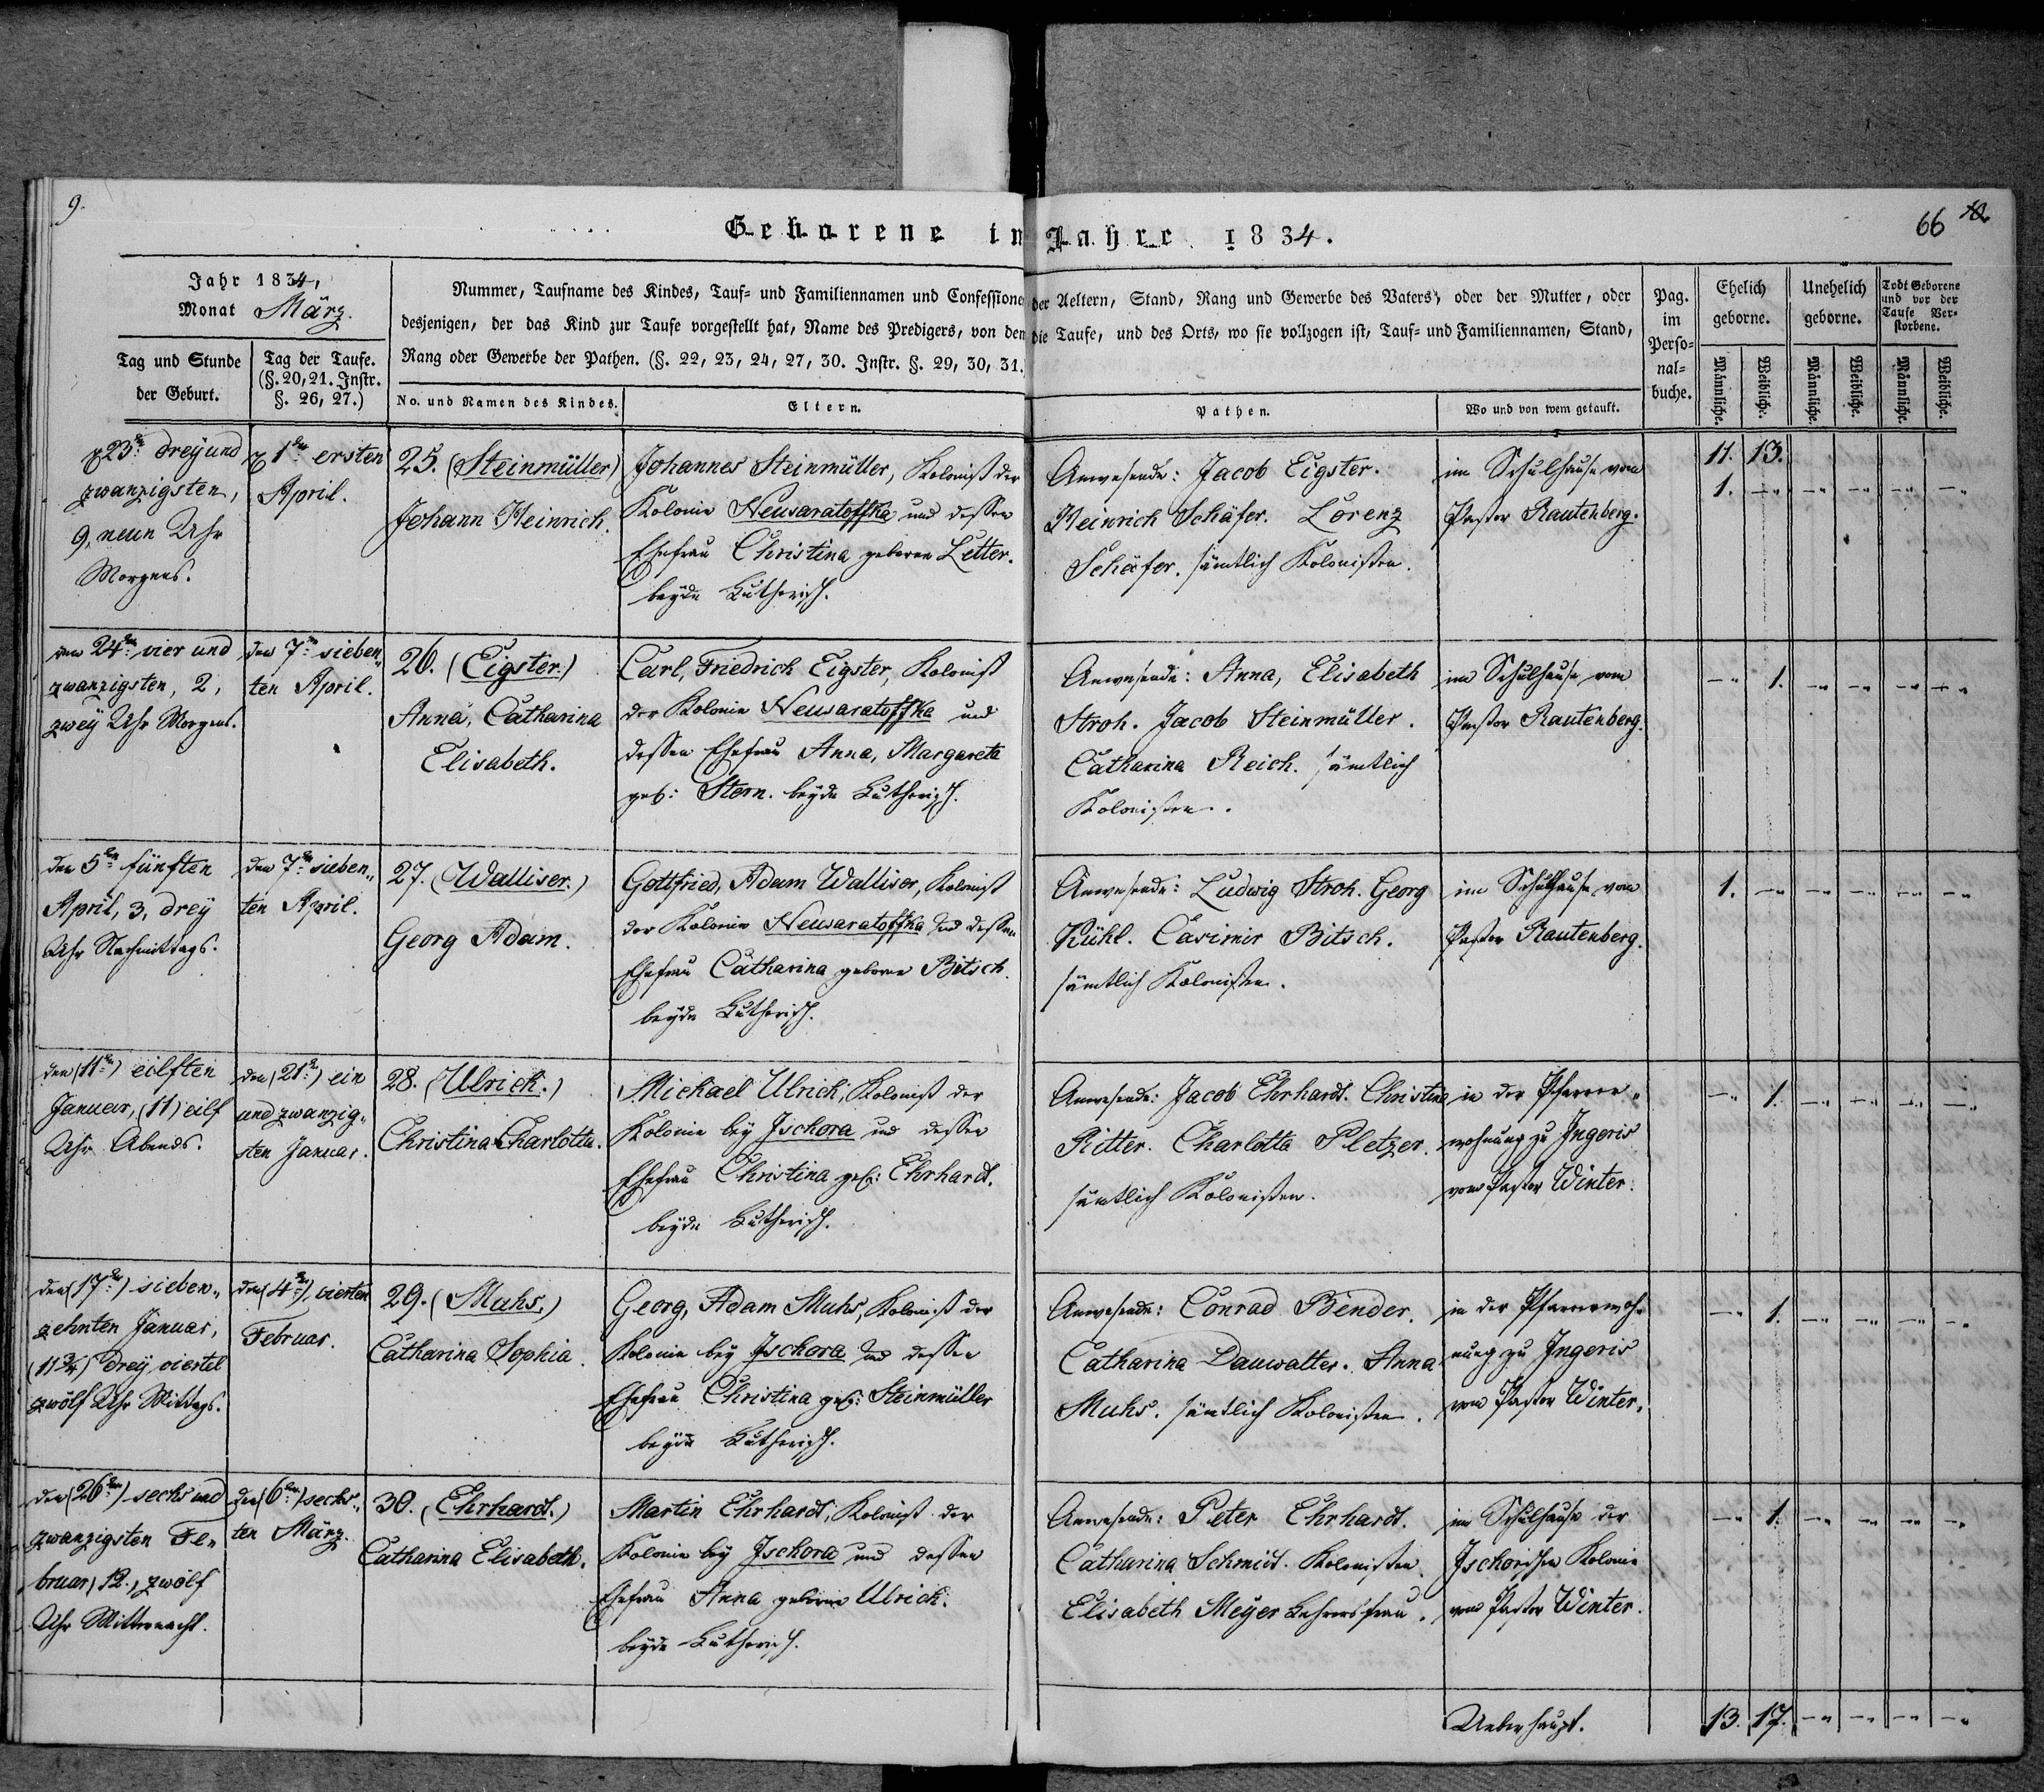 9.
Geborene im Jahre 1834.
66 10.
Jahr 1834,
Monat März.
Nummer, Taufname des Kindes, Tauf- und Familiennamen und Confessionen der Aeltern, Stand, Rang und Gewerbe des Vaters, oder der Mutter, oder
desjenigen, der das Kind zur Taufe vorgestellt hat, Name des Predigers, von dem die Taufe, und des Orts, wo sie vollzogen ist, Tauf- und Familiennamen, Stand,
Rang oder Gewerbe der Pathen. (§. 22, 23, 24, 27, 30. Instr. §. 29, 30, 31.
Tag und Stunde
der Geburt.
Tag der Taufe.
(§. 20, 21. Instr.
§. 26, 27.)
No. und Namen des Kindes.
Eltern.
Pathen.
Wo und von wem getauft.
Pag.
im
Perso-
nal-
buche.
Ehelich
geborne.
Unehelich
geborne.
Todt Geborene
und vor der
Taufe Ver-
storbene.
Männliche.
Weibliche.
Männliche.
Weibliche.
Männliche.
Weibliche.
23. dreyund
zwanzigsten,
9, neun Uhr
Morgens.
1ten ersten
April.
25. (Steinmüller)
Johann Heinrich.
Johannes Steinmüller, Kolonist der
Kolonie Neusaratoffka und dessen
Ehefrau Christina geboren Letter.
beyde Lutherisch.
Anwesende: Jacob Eigster.
Heinrich Schäfer. Lorenz
Schäfer. sämtlich Kolonisten.
im Schulhause vom
Pastor Rautenberg.
11. 13.
1. -„- -„- -„- -„- -„-
den 24ten vier und
zwanzigsten, 2,
zwey Uhr Morgens.
den 7ten sieben„
ten April.
26. (Eigster.)
Anna, Catharina
Elisabeth.
Carl, Friedrich Eigster, Kolonist
der Kolonie Neusaratoffka und
dessen Ehefrau Anna, Margareta
geb: Stern. beyde Lutherisch.
Anwesende: Anna, Elisabeth
Stroh. Jacob Steinmüller.
Catharina Reich. sämtlich
Kolonisten.
im Schulhause vom
Pastor Rautenberg.
-„- 1. -„- -„- -„- -„-
den 5ten fünften
April, 3, drey
Uhr Nachmittags.
den 7ten sieben„
ten April.
27. (Walliser.)
Georg Adam.
Gottfried, Adam Walliser, Kolonist
der Kolonie Neusaratoffka und dessen
Ehefrau Catharina geborne Bitsch.
beyde Lutherisch.
Anwesende: Ludwig Stroh. Georg
Kühl. Casimir Bitsch.
sämtlich Kolonisten.
im Schulhause vom
Pastor Rautenberg.
1. -„- -„- -„- -„- -„-
den (11ten) eilften
Januar, (11) eilf
Uhr Abends.
den (21t) ein
und zwanzig„
sten Januar.
28. (Ulrich.)
Christina Charlotta.
Michael Ulrich, Kolonist der
Kolonie bey Ischora und dessen
Ehefrau Christina geb: Ehrhardt.
beyde Lutherisch.
Anwesende: Jacob Ehrhardt. Christina
Ritter. Charlotta Pletzer.
sämtlich Kolonisten.
in der Pfarrer„
wohnung zu Ingeris
vom Pastor Winter.
-„- 1. -„- -„- -„- -„-
den (17ten) sieben„
zehnten Januar,
(11 3/4) drey viertel
zwölf Uhr Mittags.
den (4ten) vierten
Februar.
29. (Muhs.)
Catharina Sophia.
Georg, Adam Muhs, Kolonist der
Kolonie bey Ischora und dessen
Ehefrau Christina geb: Steinmüller
beyde Lutherisch.
Anwesende: Conrad Bender.
Catharina Dauwalter. Anna
Muhs. sämtlich Kolonisten.
in der Pfarrerwoh„
nung zu Ingeris
vom Pastor Winter.
-„- 1. -„- -„- -„- -„-
den (26ten) sechs und
zwanzigsten Fe„
bruar, 12., zwölf
Uhr Mitternacht.
den (6ten) sechs„
ten März.
30. (Ehrhardt.)
Catharina Elisabeth.
Martin Ehrhardt, Kolonist der
Kolonie bey Ischora und dessen
Ehefrau Anna geborne Ulrich.
beyde Lutherisch.
Anwesende: Peter Ehrhardt.
Catharina Schmidt. Kolonisten.
Elisabeth Meyer Lehrersfrau.
im Schulhause der
Ischorschen Kolonie
vom Pastor Winter.
-„- 1. -„- -„- -„- -„-
Ueberhaupt.
13. 17. -„- -„- -„- -„-